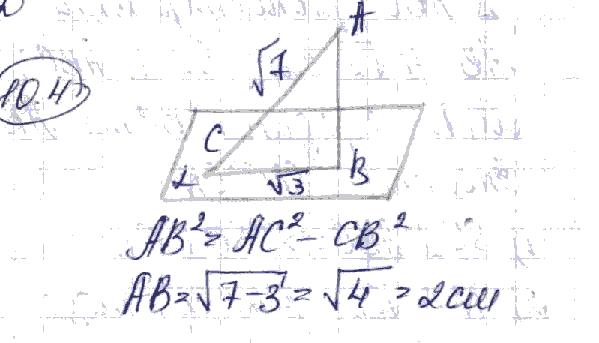 10.4
A
√7
C
α √3 B
AB² = AC² - CB²
AB = √7-3 = √4 = 2 см